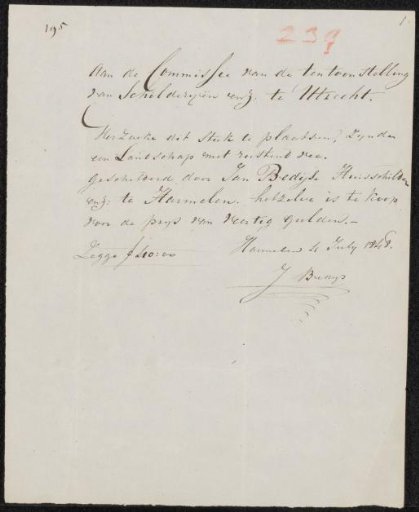 195
239
1
Aan de Commissee van de tentoonstelling
van Schilderijen enz. te Utrecht.
Verzoeke dit stuk te plaatsen, zijnde
een Landschap met rustend vee
geschilderd door Jan Bedijs Huisschilder
enz. te Harmelen. hetzelve is te koop
voor de prijs van veertig gulden.-
Zegge f 40:00
Harmelen 4 July 1848.
J Bedijs